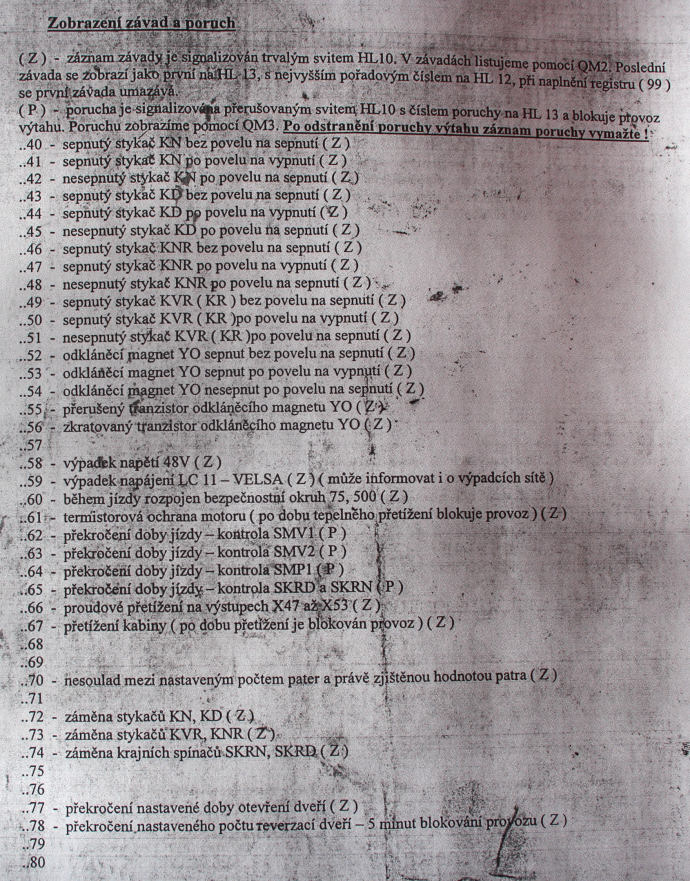 Zobrazení závad a poruch
( Z ) - záznam závady je signalizován trvalým svitem HL10. V závadách listujeme pomocí QM2. Poslední
závada se zobrazí jako první na HL 13, s nejvyšším pořadovým číslem na HL 12, při naplnění registru ( 99 )
se první závada umazává.
( P ) - porucha je signalizována přerušovaným svitem HL10 s číslem poruchy na HL 13 a blokuje provoz
výtahu. Poruchu zobrazíme pomocí QM3. Po odstranění poruchy výtahu záznam poruchy vymažte !
..40 - sepnutý stykač KN bez povelu na sepnutí ( Z )
..41 - sepnutý stykač KN po povelu na vypnutí ( Z )
..42 - nesepnutý stykač KN po povelu na sepnutí ( Z )
..43 - sepnutý stykač KD bez povelu na sepnutí ( Z )
..44 - sepnutý stykač KD po povelu na vypnutí ( Z )
..45 - nesepnutý stykač KD po povelu na sepnutí ( Z )
..46 - sepnutý stykač KNR bez povelu na sepnutí ( Z )
..47 - sepnutý stykač KNR po povelu na vypnutí ( Z )
..48 - nesepnutý stykač KNR po povelu na sepnutí ( Z )
..49 - sepnutý stykač KVR ( KR ) bez povelu na sepnutí ( Z )
..50 - sepnutý stykač KVR ( KR )po povelu na vypnutí ( Z )
..51 - nesepnutý stykač KVR ( KR )po povelu na sepnutí ( Z )
..52 - odkláněcí magnet YO sepnut bez povelu na sepnutí ( Z )
..53 - odkláněcí magnet YO sepnut po povelu na vypnutí ( Z )
..54 - odkláněcí magnet YO nesepnut po povelu na sepnutí ( Z )
..55 - přerušený tranzistor odkláněcího magnetu YO ( Z )
..56 - zkratovaný tranzistor odkláněcího magnetu YO ( Z )
..57
..58 - výpadek napětí 48V ( Z )
..59 - výpadek napájení LC 11 – VELSA ( Z ) ( může informovat i o výpadcích sítě )
..60 - během jízdy rozpojen bezpečnostní okruh 75, 500 ( Z )
..61 - termistorová ochrana motoru ( po dobu tepelného přetížení blokuje provoz ) ( Z )
..62 - překročení doby jízdy – kontrola SMV1 ( P )
..63 - překročení doby jízdy – kontrola SMV2 ( P )
..64 - překročení doby jízdy – kontrola SMP1 ( P )
..65 - překročení doby jízdy – kontrola SKRD a SKRN ( P )
..66 - proudové přetížení na výstupech X47 až X53 ( Z )
..67 - přetížení kabiny ( po dobu přetížení je blokován provoz ) ( Z )
..68
..69
..70 - nesoulad mezi nastaveným počtem pater a právě zjištěnou hodnotou patra ( Z )
..71
..72 - záměna stykačů KN, KD ( Z )
..73 - záměna stykačů KVR, KNR ( Z )
..74 - záměna krajních spínačů SKRN, SKRD ( Z )
..75
..76
..77 - překročení nastavené doby otevření dveří ( Z )
..78 - překročení nastaveného počtu reverzací dveří – 5 minut blokování provozu ( Z )
..79
..80